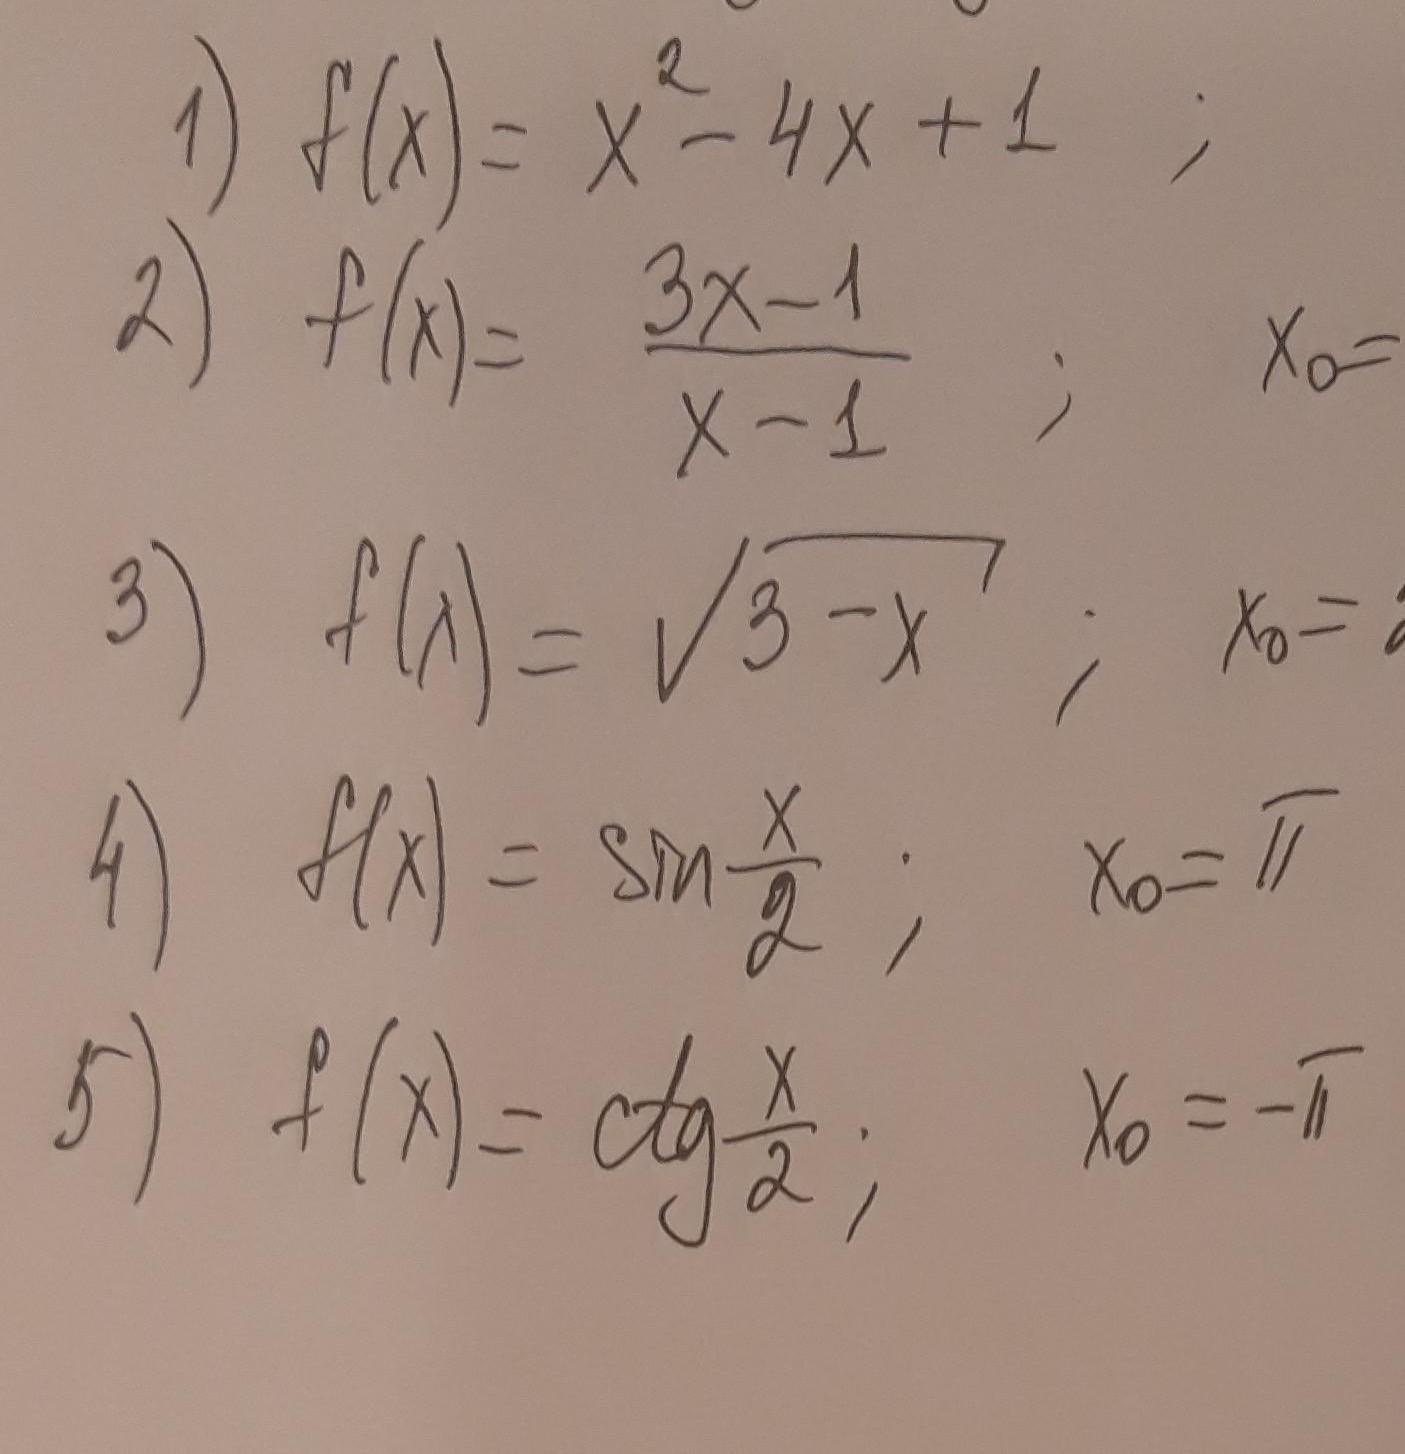 1) f(x) = x² - 4x + 1 ;
2) f(x) = (3x-1)/(x-1) ; x₀ =
3) f(x) = √(3-x) ; x₀ =
4) f(x) = sin x/2 ; x₀ = π
5) f(x) = ctg x/2 ; x₀ = -π